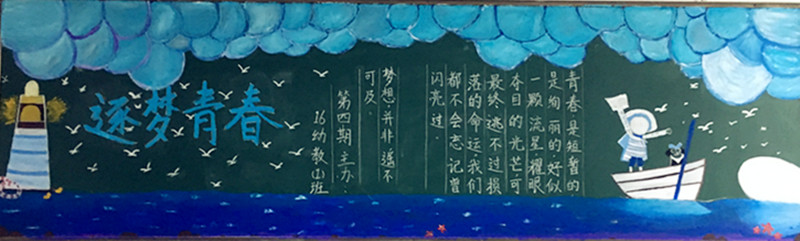 逐梦青春
青春是短暂的
是绚丽的好似
一颗流星耀眼
夺目的光芒可
最终逃不过损
落的命运我们
都不会忘记曾
闪亮过.
梦想.并非遥不
可及.
第四期主办:
16幼教(1)班